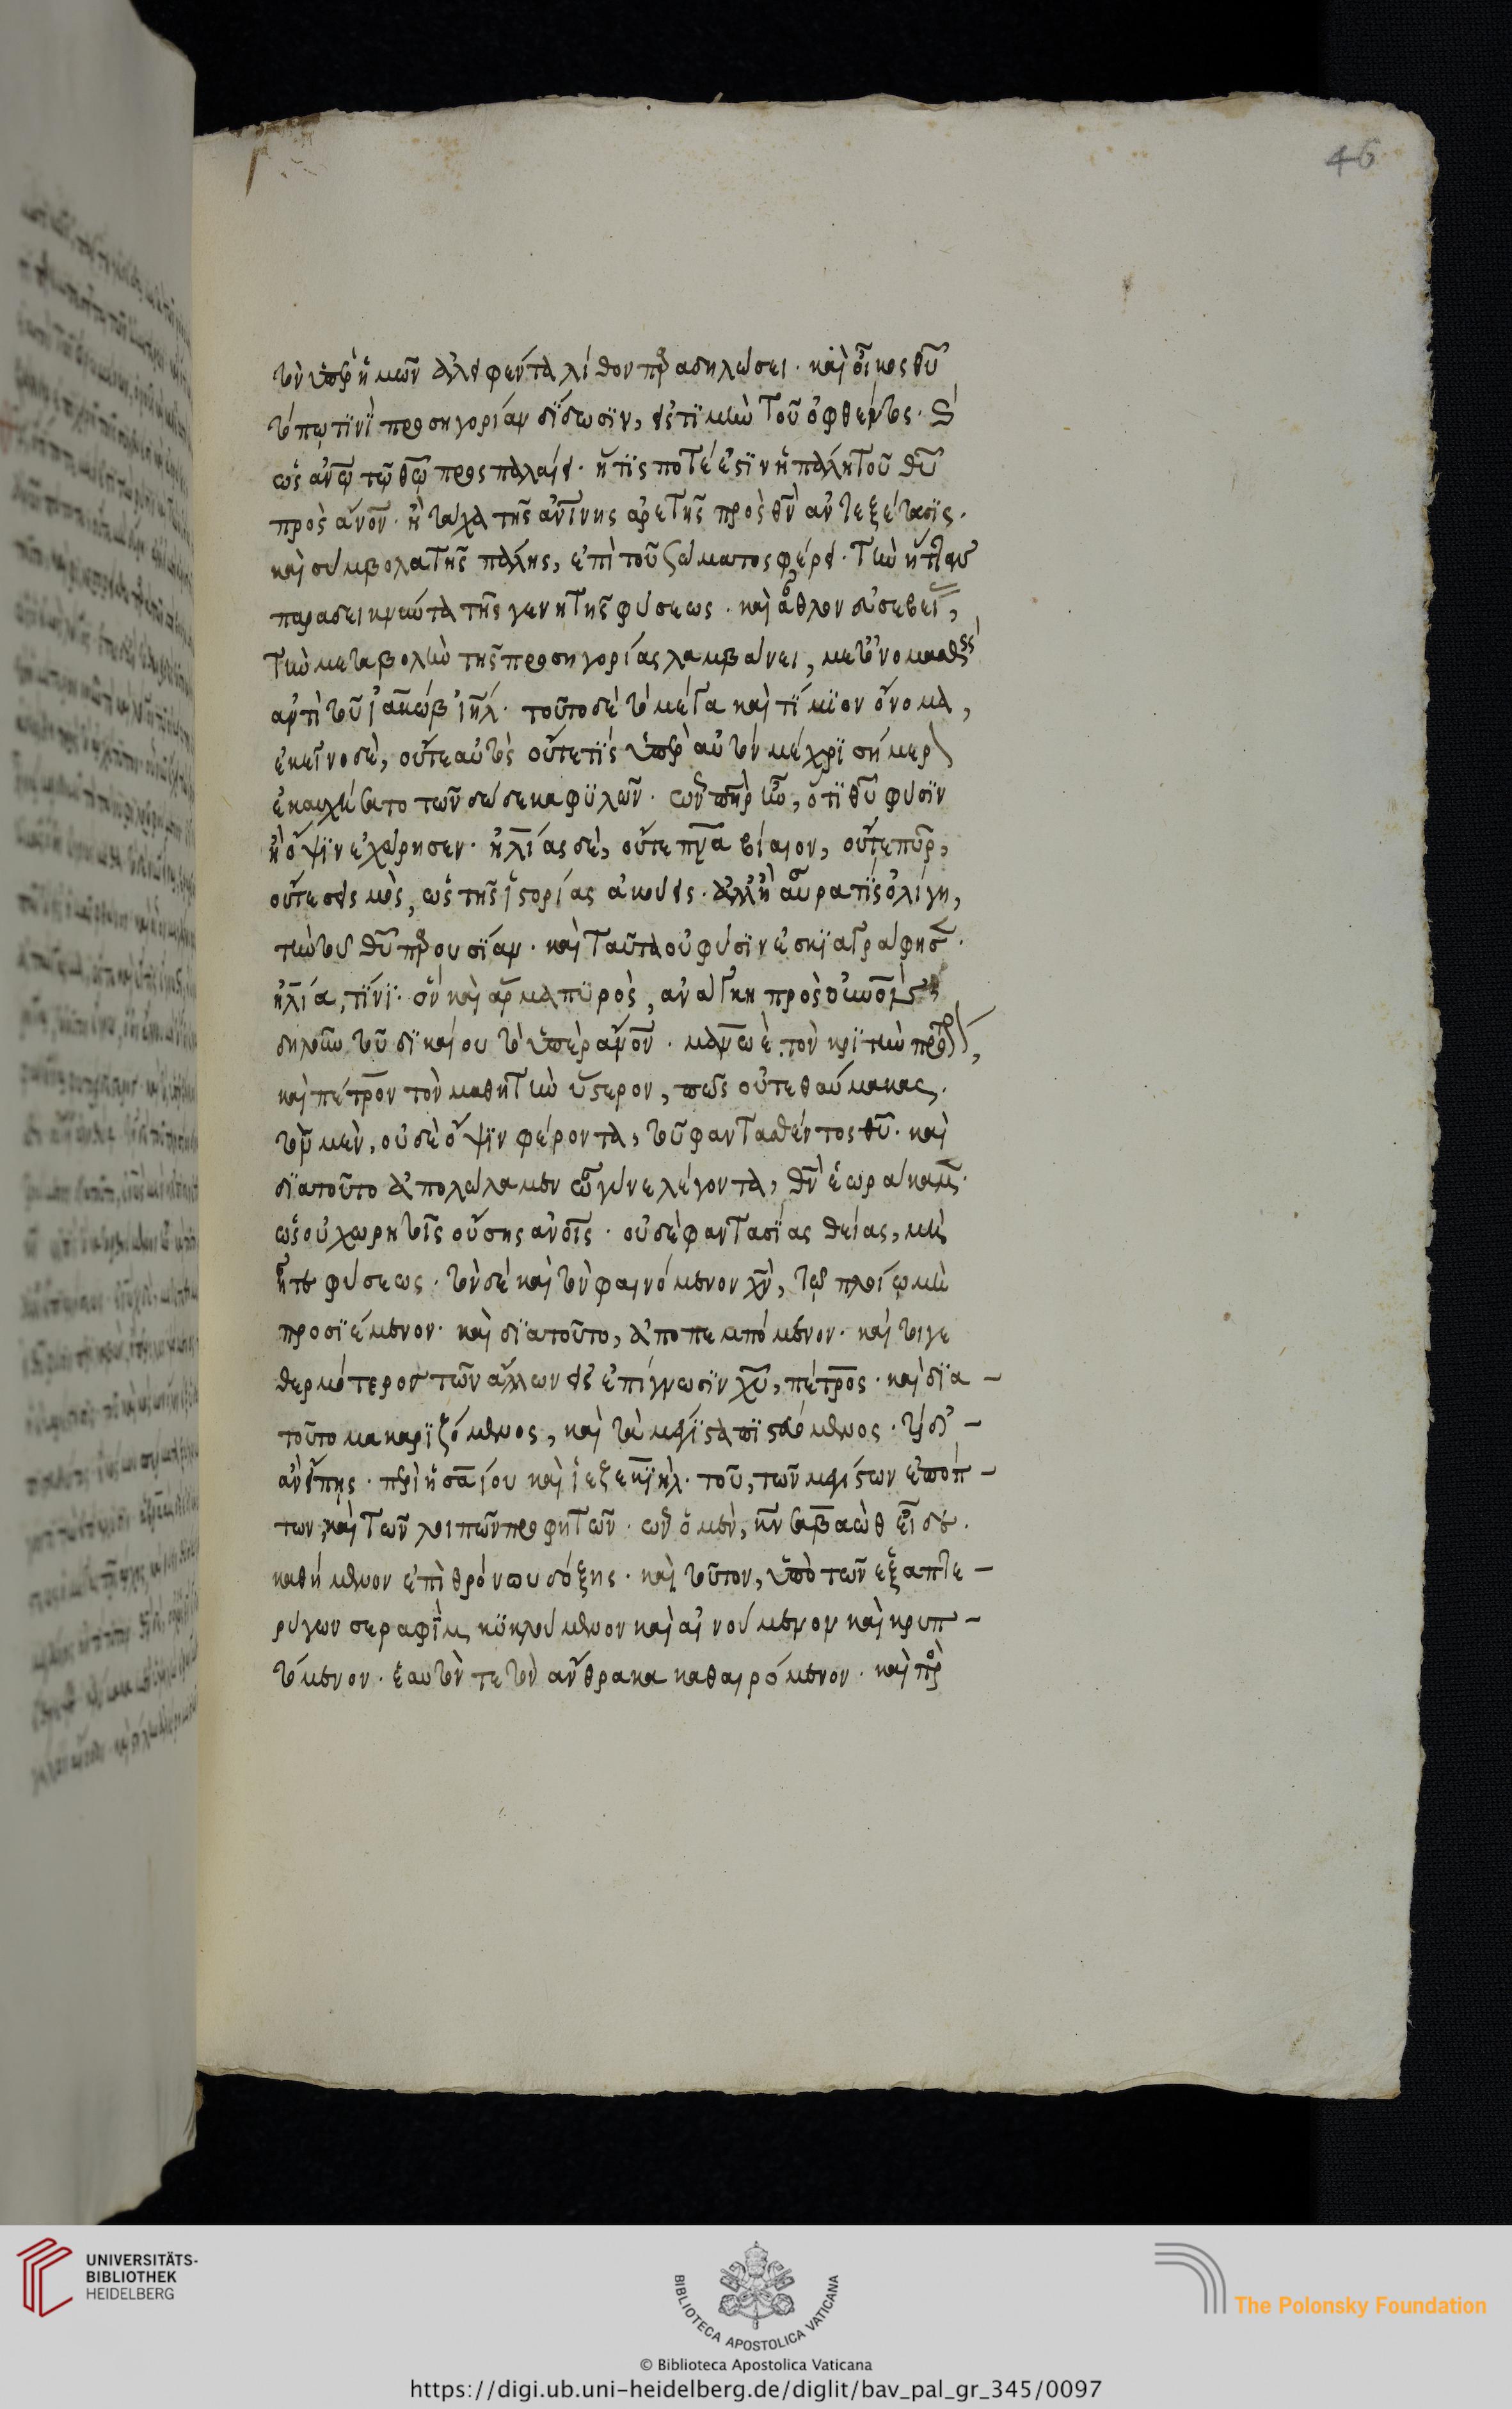 τὸν ὑπὲρ ἡμῶν ἀλειφέντα λίθον παραδηλώσει· καὶ οἶκος θυ̅
τόπῳ τϊνὶ προσηγορίαν δίδωσϊν, εἰς τϊμὴν τοῦ ὀφθέντος· καὶ
ὡς ἀνω̅ τῷ θω̅ προσπαλαίει· ἥτϊς ποτέ ἐστϊν ἡ πάλη τοῦ θυ̅
πρὸς ἀνον̅· ἢ τάχα τῆς ἀνίνης ἀρετῆς πρὸς θν̅ ἀντεξέτασϊς·
καὶ σύμβολα τῆς πάλης, ἐπὶ τοῦ σώματος φέρει· τὴν ἧτταν
παραδεικνύντα τῆς γενητῆς φύσεως· καὶ ἆθλον εὐσεβείας,
τὴν μεταβολὴν τῆς προσηγορίας λαμβάνει, μετονομασθεὶς
ἀντὶ τοῦ ἰακὼβ ιηλ̅· τοῦτο δὲ τὸ μέγα καὶ τίμϊον ὄνομα,
ἐκεῖνο δὲ, οὔτε αὐτὸς οὔτε τϊς ὑπὲρ αὐτὸν μέχρϊ σήμερον
ἐκαυχήσατο τῶν δώδεκα φϋλῶν· ὧν πηρ̅ ἦν, ὅτϊ θυ̅ φύσϊν
ἢ ὄψϊν ἐχώρησεν· ἠλίας δὲ, οὔτε πνα̅ βίαιον, οὔτε πῦρ,
οὔτε σεισμὸς, ὡς τῆς ἱστορίας ἀκούεις· ἀλλ' ἢ αὔρα τϊς ὀλίγη,
τὴν τοῦ θυ̅ παρουσϊαν· καὶ ταῦτα οὐ φύσϊν ἐσκϊαγράφησεν·
ἠλία, τϊνϊ· ὃν καὶ ἅρμα πϋρὸς, ἀνάγκη πρὸς οὐνον̅
δηλοῦν τοῦ δϊκαίου τὸ ὑπὲρ ἀνον̅· μανωὲ τὸν κρϊτὴν πρότερον,
καὶ πέτρον τὸν μαθητὴν ὕστερον, πῶς οὐ τεθαύμακας·
τὸν μὲν, οὐδὲ ὄψϊν φέροντα, τοῦ φαντασθέντος θυ̅· καὶ
δϊατοῦτο ἀπολώλαμεν ὦ γύνε λέγοντα, θν̅ ἑωράκαμεν·
ὡς οὐ χωρητῆς οὔσης ἀνοις̅· οὐδὲ φαντασίας θείας, μὴ
ὅτι φύσεως· τὸν δὲ καὶ τὸν φαινόμενον χν̅, τῷ πλοίῳ μὴ
προσϊέμενον· καὶ δϊατοῦτο, ἀποπεμπόμενον· καί τοιγε
θερμότερος τῶν ἄλλων εἰς ἐπίγνωσϊν χυ̅, πέτρος· καὶ δϊα -
τοῦτο μακαρϊζόμενος, καὶ τὰ μέγϊστα πϊστευόμενος· τί δ' -
ἂν εἴπης· περὶ ἡσαΐου καὶ ἰεζεκϊὴλ· τοῦ, τῶν μεγίστων ἐπόπ -
των, καὶ τῶν λοιπῶν προφητῶν· ὧν ὁ μὲν, κν̅ σαβαὼθ εἶδε·
καθήμενον ἐπὶ θρόνου δόξης· καὶ τοῦτον, ὑπὸ τῶν ἑξαπτε -
ρύγων σεραφὶμ κϋκλούμενον καὶ αἰνούμενον καὶ κρυπ -
τόμενον· ἑαυτόν τε τὸν ἄνθρακα καθαιρόμενον· καὶ πρὸς
46
UNIVERSITÄTS-
BIBLIOTHEK
HEIDELBERG
BIBLIOTECA APOSTOLICA VATICANA
The Polonsky Foundation
© Biblioteca Apostolica Vaticana
https://digi.ub.uni-heidelberg.de/diglit/bav_pal_gr_345/0097